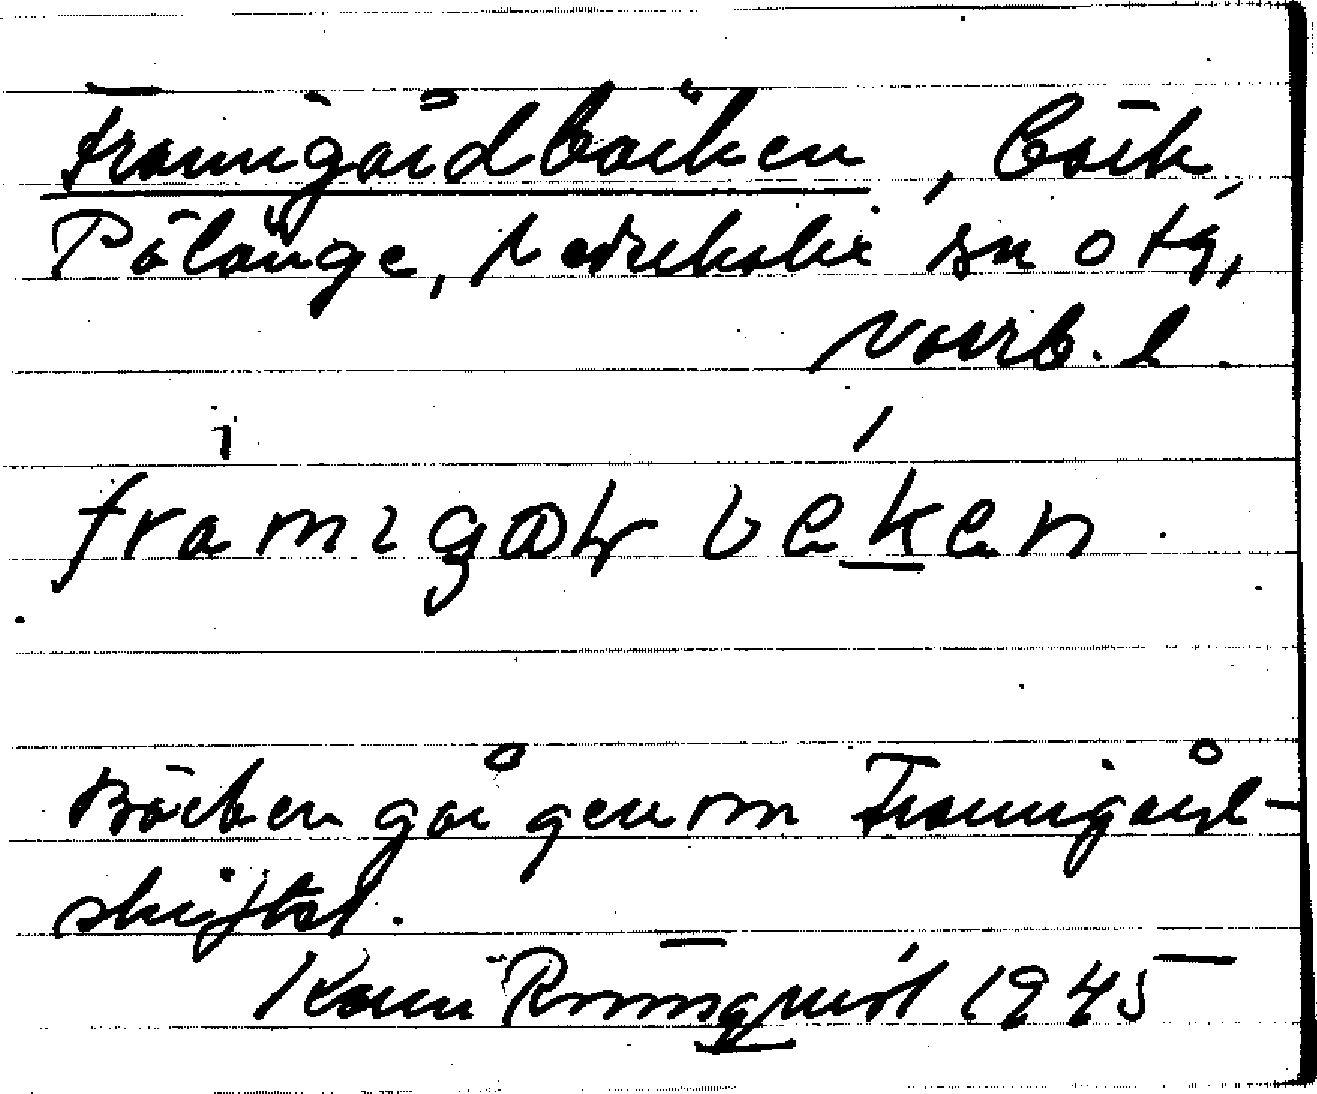 Framigårdbäcken, bäck,
Pålänge, Nederkalix sn o tg,
Norrb. l.
framigaɷr beken
Bäcken går genom Framigård-
skiftet.
Karin Rönnquist 1945